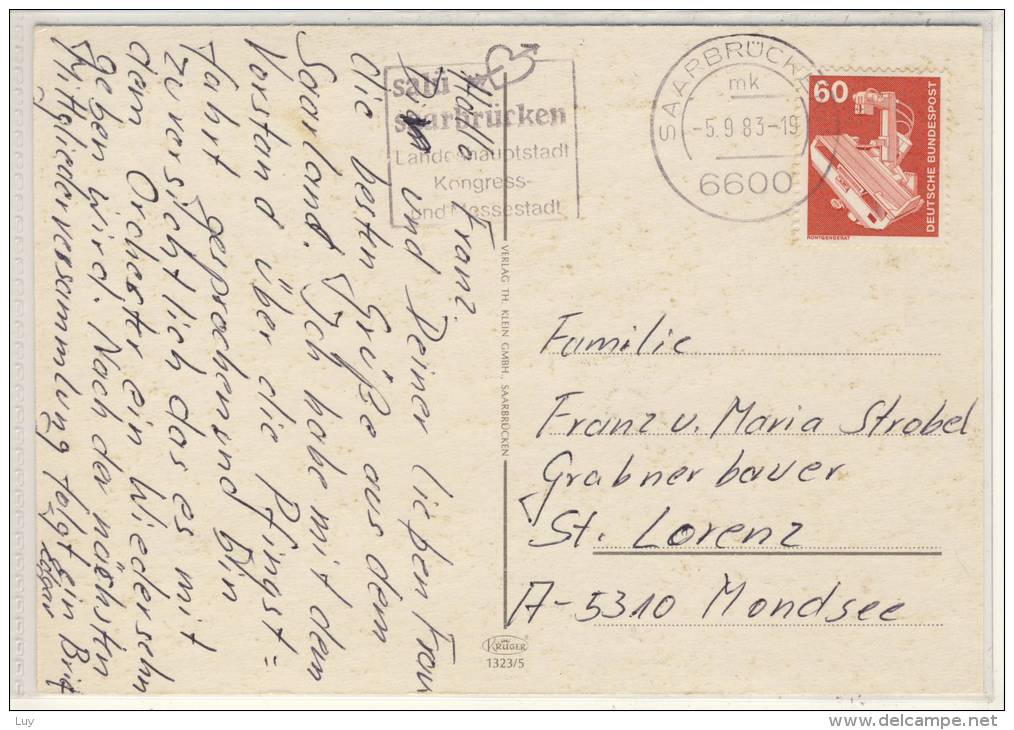 Hallo Franz.
Dir und Deiner lieben Frau
die besten Grüße aus dem
Saarland. Ich habe mit dem
Vorstand über die Pfingst=
fahrt gesprochen und bin
zuversichtlich das es mit
dem Orchester ein Wiedersehn
geben wird. Nach der nächsten
Mitgliederversammlung folgt ein Brief
Edgar
salü
saarbrücken
Landeshauptstadt
Kongress-
und Messestadt
SAARBRÜCKEN
mk
-5.9.83-19
6600
60
DEUTSCHE BUNDESPOST
RÖNTGENGERÄT
VERLAG TH. KLEIN GMBH., SAARBRÜCKEN
Familie
Franz u. Maria Strobel
Grabnerbauer
St. Lorenz
A-5310 Mondsee
KRÜGER
1323/5
Luy
www.delcampe.net